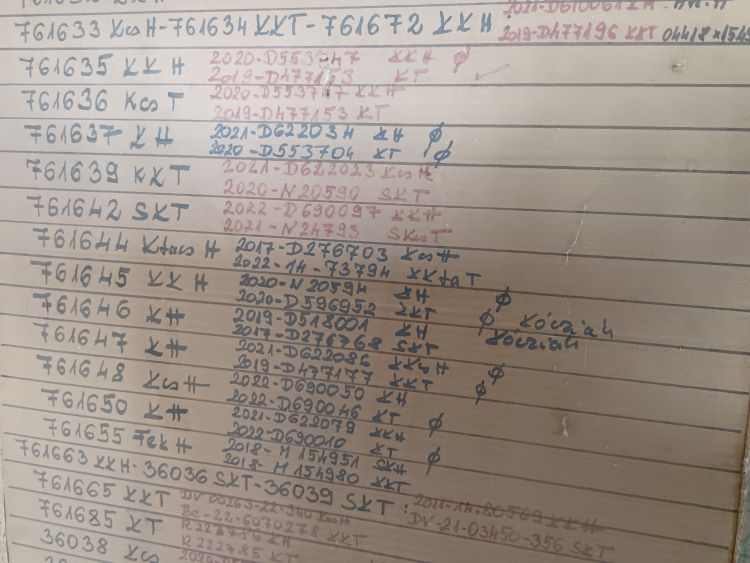 761633 KcsH-761634 KKT-761672 KKH:
2019-D477196 KKT 04418x154
761635 KKH 2020-D553747 KKH ϕ
2019-D477153 KT
761636 KcsT 2020-D553747 KKH
2019-D477153 KT
761637 KH 2021-D622034 KH ϕ
2020-D553704 KT ϕ
761639 KKT 2021-D622023 KcsH
2020-N20590 SKT
761642 SKT 2022-D690097 KKH
2021-N24793 SKcsT
761644 KtacsH 2017-D276703 KcsH
2022-14-73794 KKtaT
761645 KKH 2020-N20594 KH ϕ
2020-D596952 KKT
761646 KH 2019-D518001 KH ϕ Kócziák
2017-D276768 SKT Kócziák
761647 KH 2021-D622086 KKcsH ϕ
2019-D477177 KKT
761648 KcsH 2022-D690050 KH ϕ
2022-D690046 KT
761650 KH 2021-D622079 KKH ϕ
2022-D690010 KT
761655 FekH 2018-M154951 SKH ϕ
2018-M154980 KKT
761663 KKH-36036 SKT-36039 SKT: 2011-14-80569 KKH
DV-21-03450-356 SKT
761665 KKT DV 00263-22-340 KcsH
Bc-22-6070278 KKT
761685 KT R222786 KH
R222785 KT
36038 Kcs